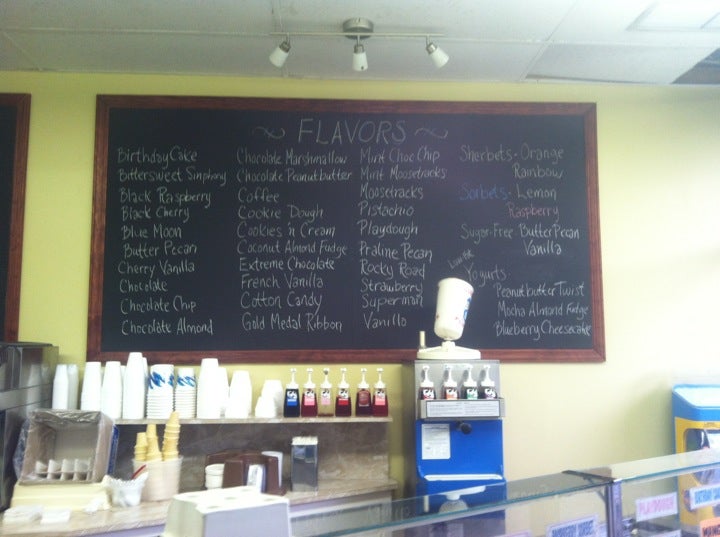 ~ FLAVORS ~
Birthday Cake
Bittersweet Sinphony
Black Raspberry
Black Cherry
Blue Moon
Butter Pecan
Cherry Vanilla
Chocolate
Chocolate Chip
Chocolate Almond
Chocolate Marshmallow
Chocolate Peanutbutter
Coffee
Cookie Dough
Cookies 'n Cream
Coconut Almond Fudge
Extreme Chocolate
French Vanilla
Cotton Candy
Gold Medal Ribbon
Mint Choc Chip
Mint Moosetracks
Moosetracks
Pistachio
Playdough
Praline Pecan
Rocky Road
Strawberry
Superman
Vanilla
Sherbets - Orange
Rainbow
Sorbets - Lemon
Raspberry
Sugar-Free Butter Pecan
Vanilla
Low-Fat
Yogurts
Peanutbutter Twist
Mocha Almond Fudge
Blueberry Cheesecake
PLAYDOUGH